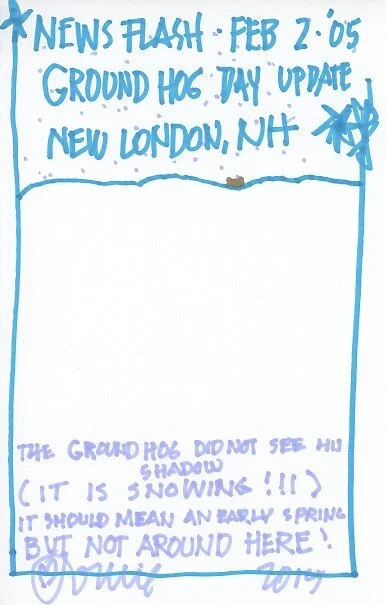 NEWS FLASH · FEB 2 · '05
GROUND HOG DAY UPDATE
NEW LONDON, NH
THE GROUND HOG DID NOT SEE HIS
SHADOW
(IT IS SNOWING!!!)
IT SHOULD MEAN AN EARLY SPRING
BUT NOT AROUND HERE!